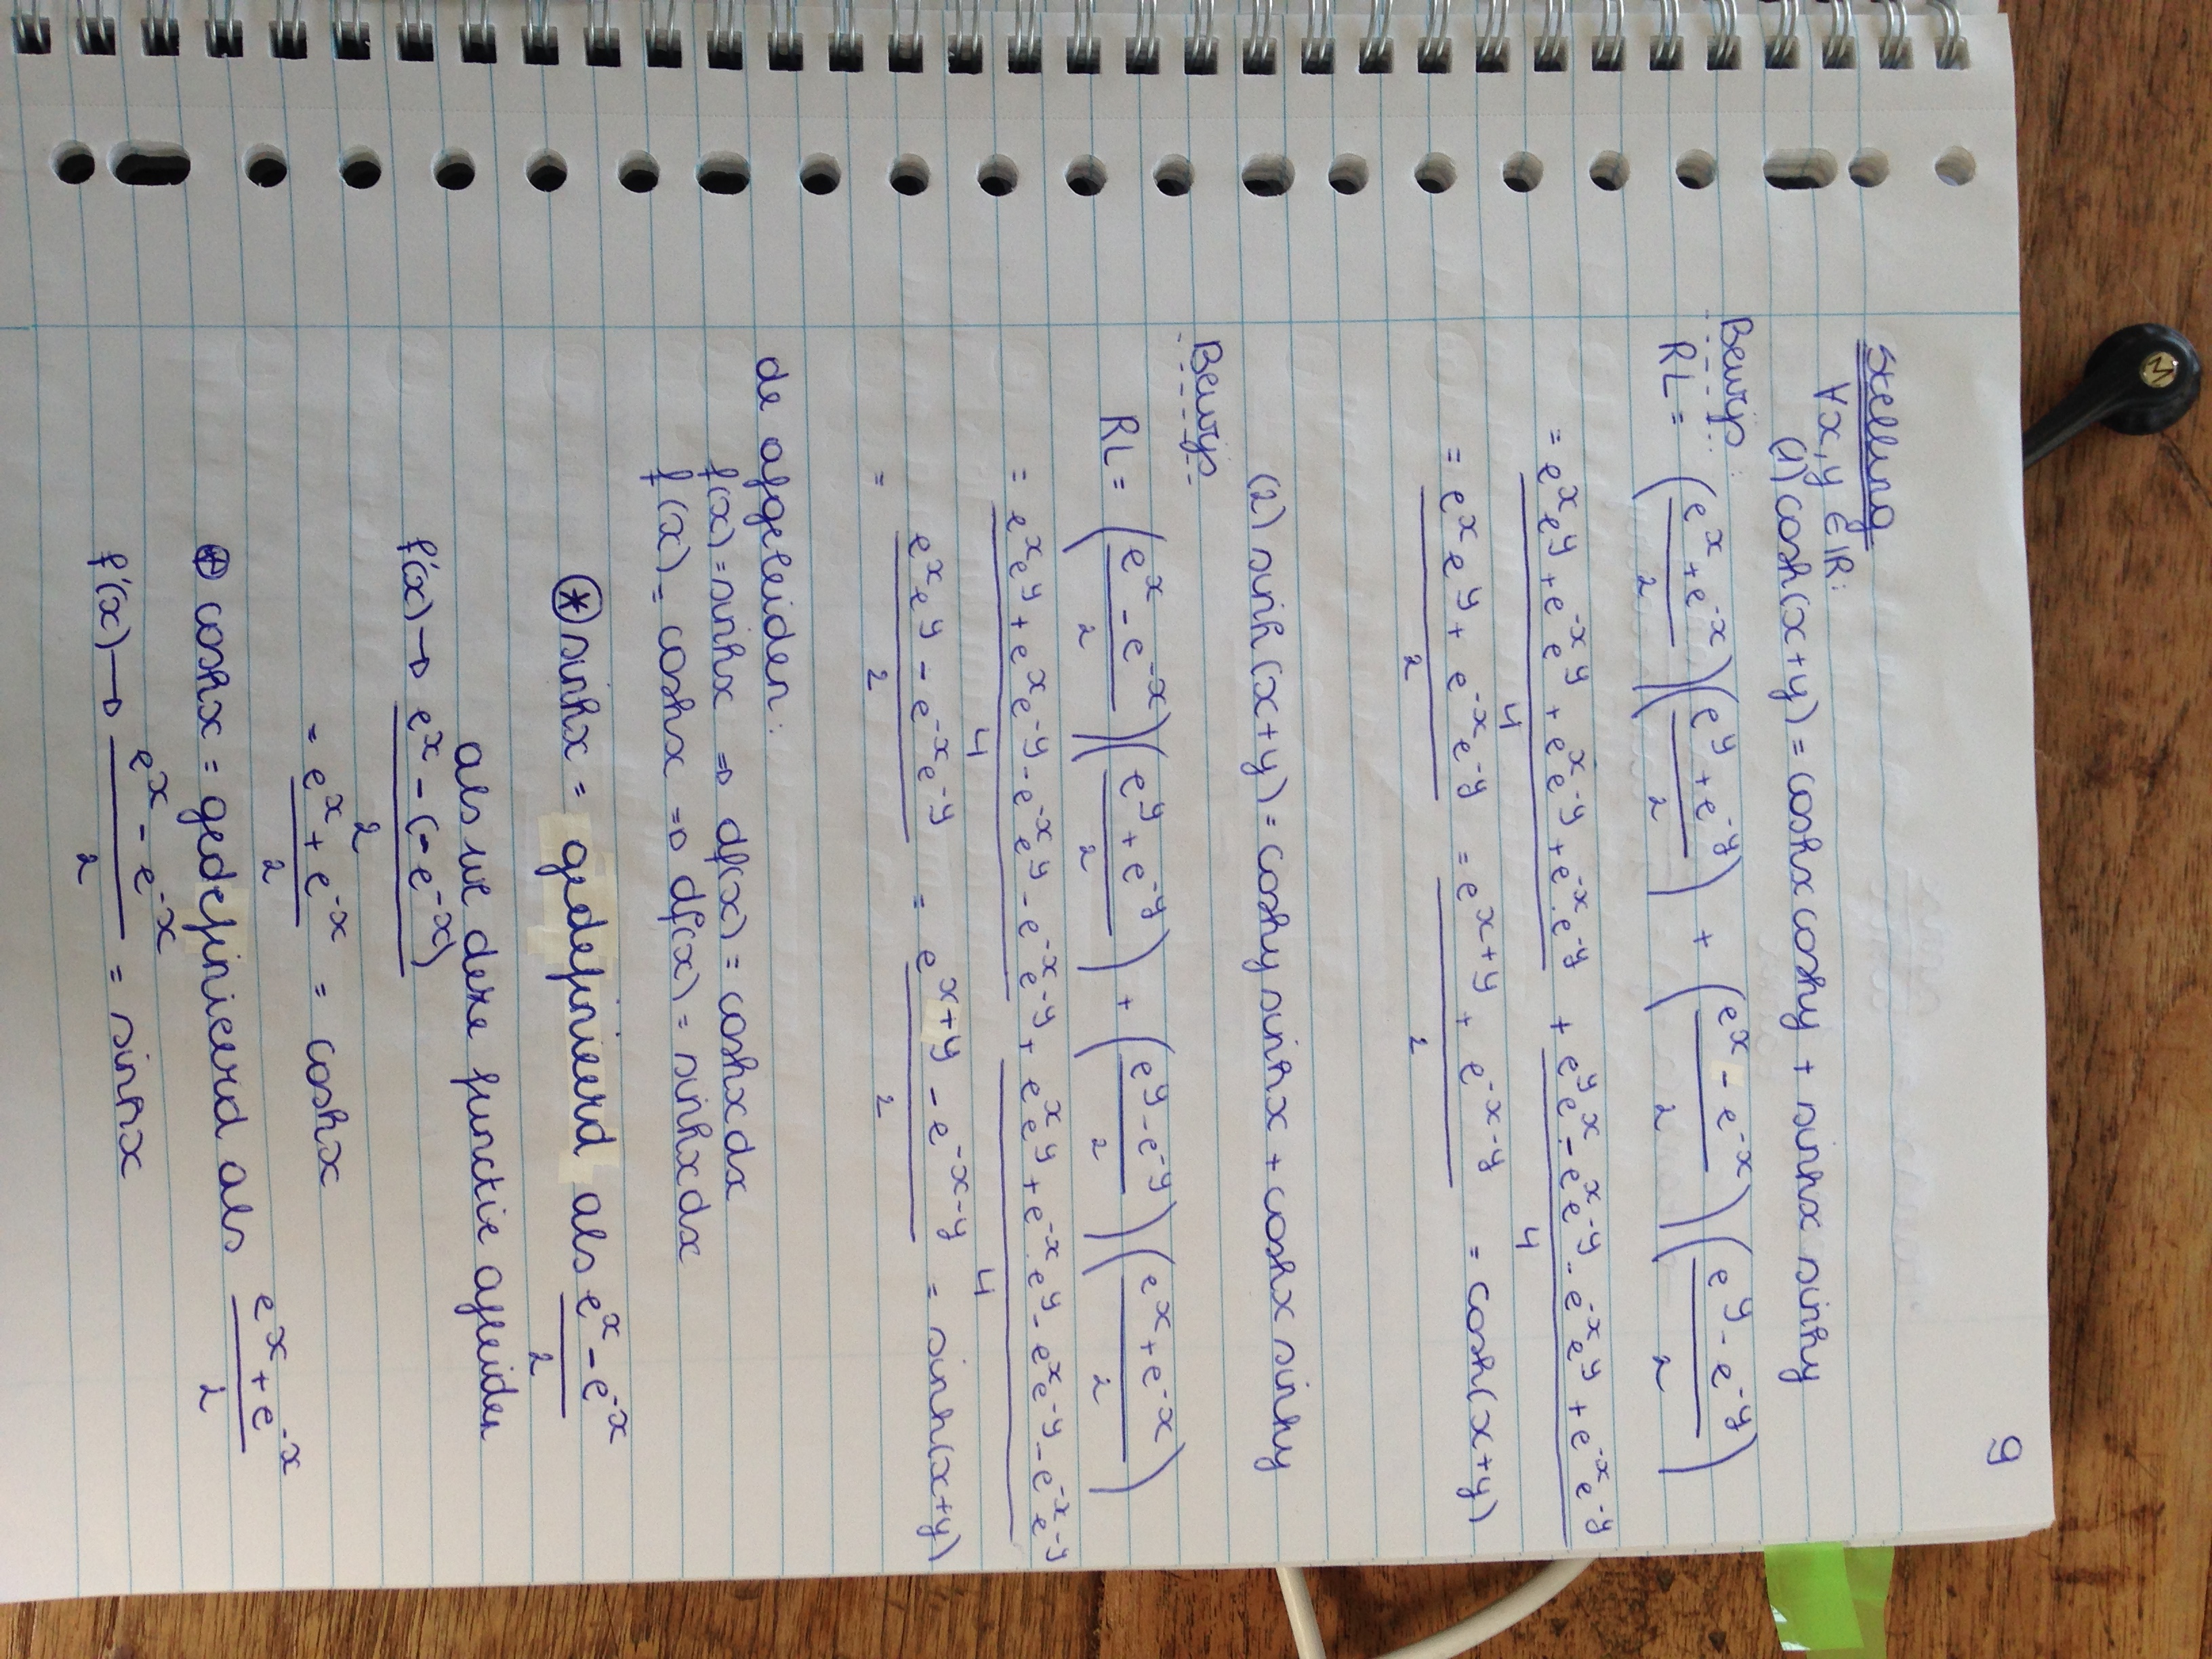 M
9
Stelling
∀x, y ∈ IR:
(1) cosh(x+y) = coshx coshy + sinhx sinhy
Bewijs:
RL = ((e^x + e^-x)/2)((e^y + e^-y)/2) + ((e^x - e^-x)/2)((e^y - e^-y)/2)
= (e^x e^y + e^-x e^y + e^x e^-y + e^-x . e^-y)/4 + (e^y e^x - e^x e^-y - e^-x e^y + e^-x e^-y)/4
= (e^x e^y + e^-x e^-y)/2 = (e^x+y + e^-x-y)/2 = cosh(x+y)
(2) sinh(x+y) = coshy sinhx + coshx sinhy
Bewijs
RL = ((e^x - e^-x)/2)((e^y + e^-y)/2) + ((e^y - e^-y)/2)((e^x + e^-x)/2)
= (e^x e^y + e^x e^-y - e^-x e^y - e^-x e^-y)/4 + (e^x e^y + e^-x . e^y - e^x e^-y - e^-x e^-y)/4
= (e^x e^y - e^-x e^-y)/2 = (e^x+y - e^-x-y)/2 = sinh(x+y)
de afgeleiden:
f(x) = sinhx ⇒ df(x) = coshx dx
f(x) = coshx ⇒ df(x) = sinhx dx
⊛ sinhx = gedefinieerd als (e^x - e^-x)/2
als we deze functie afleiden
f'(x) → (e^x - (-e^-x))/2
= (e^x + e^-x)/2 = coshx
⊕ coshx = gedefinieerd als (e^x + e^-x)/2
f'(x) → (e^x - e^-x)/2 = sinhx